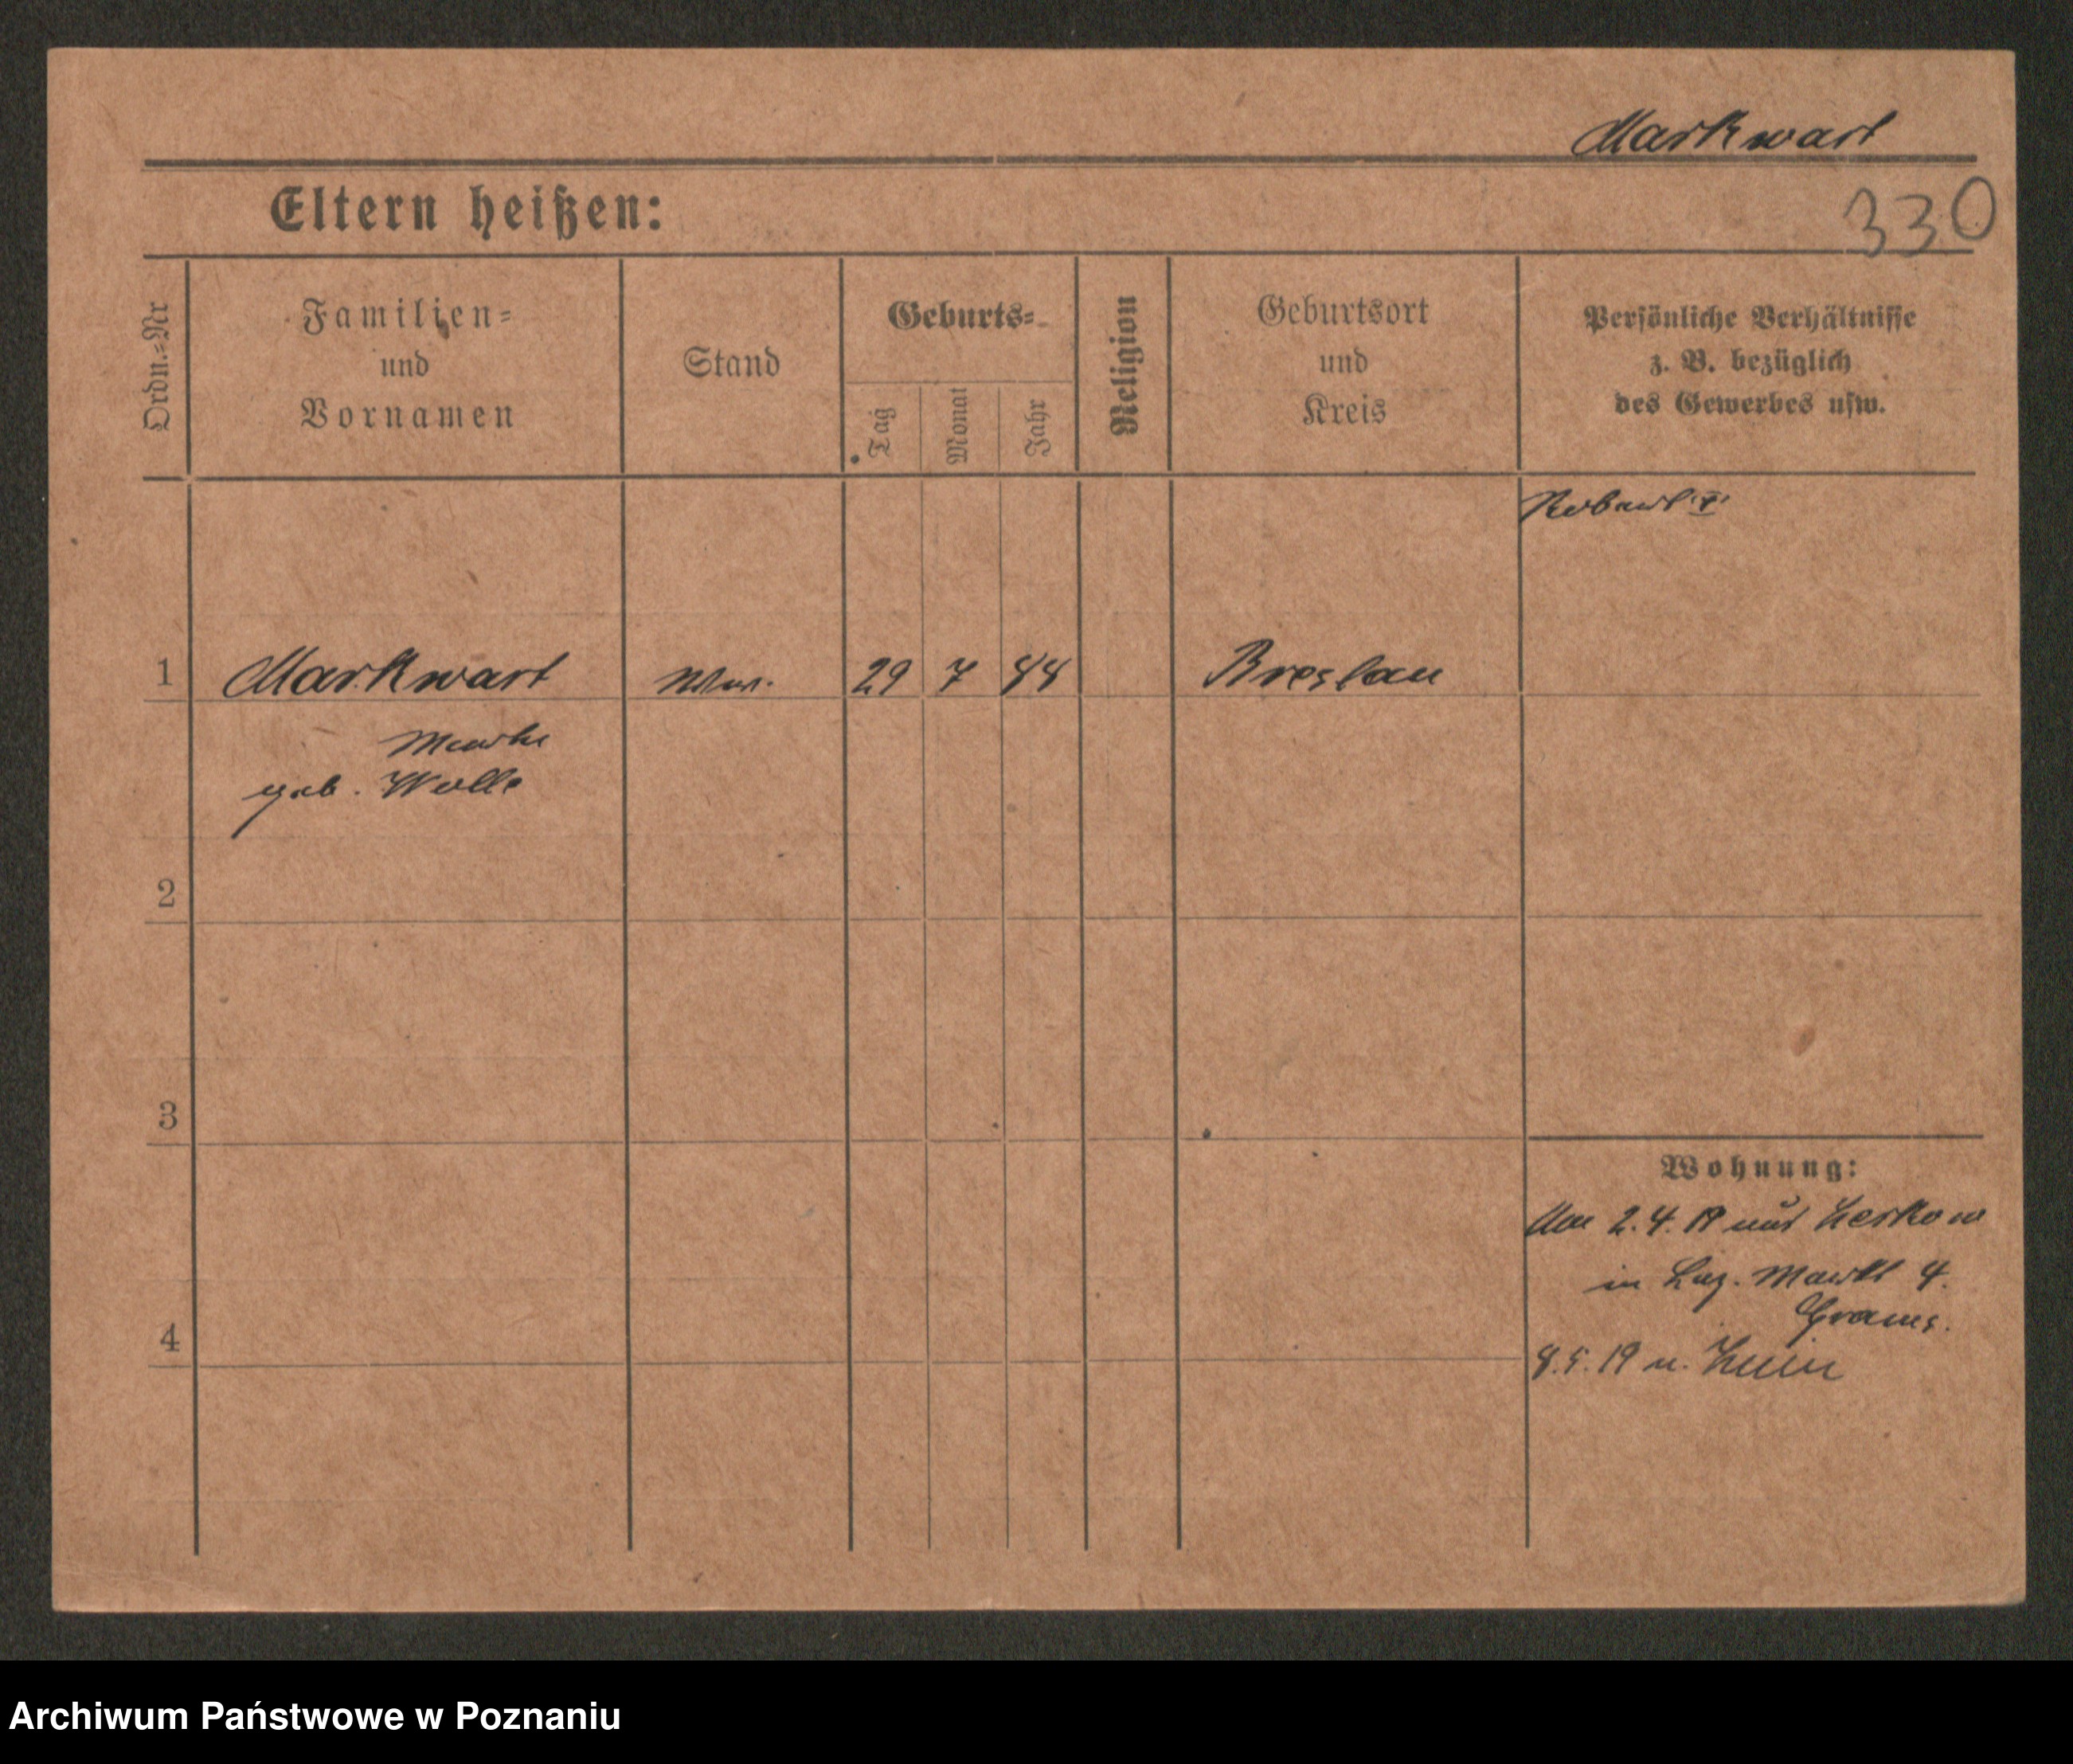 Markwart
Eltern heißen:
330
Ordn.-Nr
Familien-
und
Vornamen
Stand
Geburts-
Tag
Monat
Jahr
Religion
Geburtsort
und
Kreis
Persönliche Verhältnisse
z. B. bezüglich
des Gewerbes usw.
Robert
1 Markwart Ww. 29 7 Breslau
geb.
2
3
Wohnung:
2.4.19 aus Zerkow
in Laz. Markt 4.
4
19
Archiwum Państwowe w Poznaniu